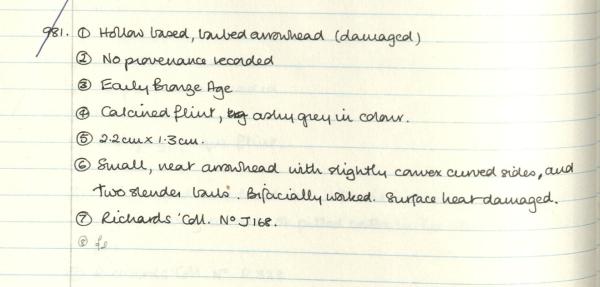 981. ① Hollow based, barbed arrowhead (damaged)
② No provenance recorded
③ Early Bronze Age
④ Calcined flint, ashy grey in colour.
⑤ 2.2cm x 1.3cm.
⑥ Small, neat arrowhead with slightly convex curved sides, and
two slender barbs. Bifacially worked. Surface heat damaged.
⑦ Richards' Coll. No J168.
⑧